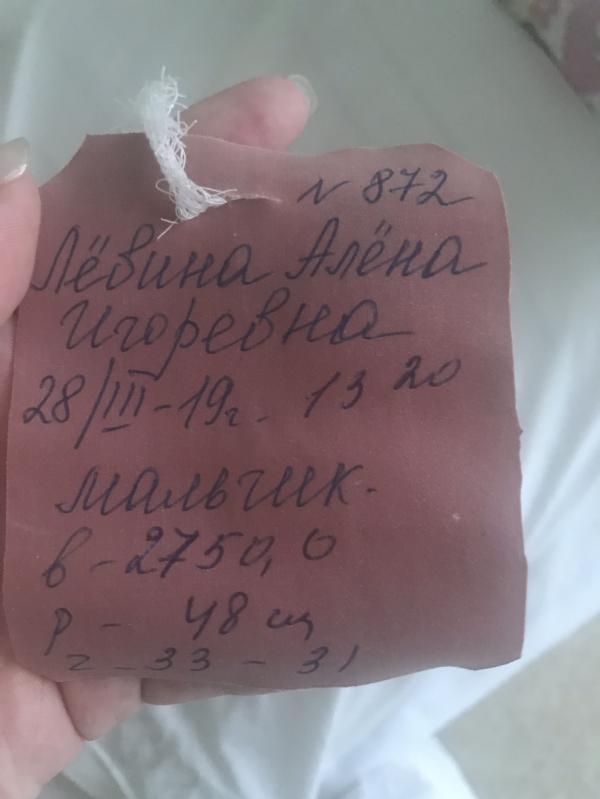 N 872
Лёвина Алёна
Игоревна
28/III-19г. 13 20
мальчик.
в-2750,0
р- 48 см
г-33-31